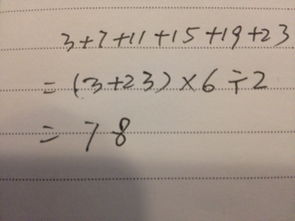 3+7+11+15+19+23
=(3+23)×6÷2
=78